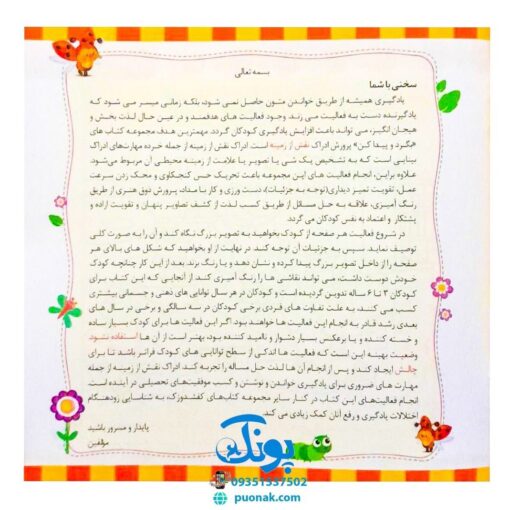 بسمه تعالی
سخنی با شما
یادگیری همیشه از طریق خواندن متون حاصل نمی شود، بلکه زمانی میسر می شود که
یادگیرنده دست به فعالیت می زند. وجود فعالیت های هدفمند و در عین حال لذت بخش و
هیجان انگیز، می تواند باعث افزایش یادگیری کودکان گردد. مهمترین هدف مجموعه کتاب های
«بگرد و پیدا کن» پرورش ادراک نقش از زمینه است. ادراک نقش از زمینه از جمله خرده مهارت‌های ادراک
بینایی است که به تشخیص یک شی یا تصویر یا علامت از زمینه محیطی آن مربوط می‌شود.
علاوه براین، انجام فعالیت های این مجموعه باعث تحریک حس کنجکاوی و محک زدن سرعت
عمل، تقویت تمیز دیداری(توجه به جزئیات)، دست ورزی و کار با مداد، پرورش ذوق هنری از طریق
رنگ آمیزی، علاقه به حل مسائل از طریق کسب لذت از کشف تصاویر پنهان و تقویت اراده و
پشتکار و اعتماد به نفس کودکان می گردد.
در شروع فعالیت هر صفحه از کودک بخواهید به تصویر بزرگ نگاه کند و آن را به صورت کلی
توصیف نماید. سپس به جزئیات آن توجه کند. در نهایت از او بخواهید که شکل های بالای هر
صفحه را از داخل تصویر بزرگ پیدا کرده و نشان دهد و یا رنگ بزند. بعد از این کار چنانچه کودک
خودش دوست داشت، می تواند نقاشی ها را رنگ آمیزی کند. از آنجایی که این کتاب برای
کودکان ۳ تا ۶ ساله تدوین گردیده است و کودکان در هر سال توانایی های ذهنی و جسمانی بیشتری
کسب می کنند، به علت تفاوت های فردی برخی کودکان در سه سالگی و برخی در سال های
بعدی رشد قادر به انجام این فعالیت ها خواهند بود. اگر این فعالیت ها برای کودک بسیار ساده
و خسته کننده و یا برعکس بسیار دشوار و ناامید کننده بود، بهتر است از آن ها استفاده نشود.
وضعیت بهینه این است که فعالیت ها اندکی از سطح توانایی های کودک فراتر باشد تا برای
چالش ایجاد کند و پس از انجام آن ها لذت حل مساله را تجربه کند. ادراک نقش از زمینه از جمله
مهارت های ضروری برای یادگیری خواندن و نوشتن و کسب موفقیت‌های تحصیلی در آینده است.
انجام فعالیت‌های این کتاب در کنار سایر مجموعه کتاب‌های کفشدوزک، به شناسایی زودهنگام
اختلالات یادگیری و رفع آنان کمک زیادی می کند.
پایدار و مسرور باشید
مؤلفین
پونک
09351337502
puonak.com